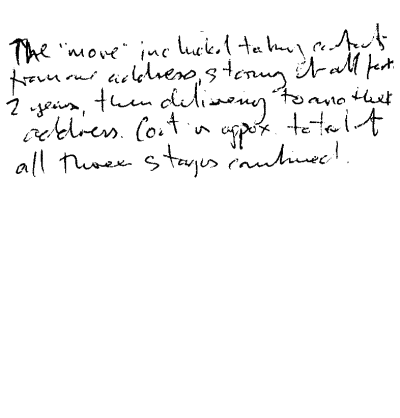 The "move" included taking contents
from one address, storing it all for
2 years, then delivering to another
address. Cost is appox. total of
all three stages combined.